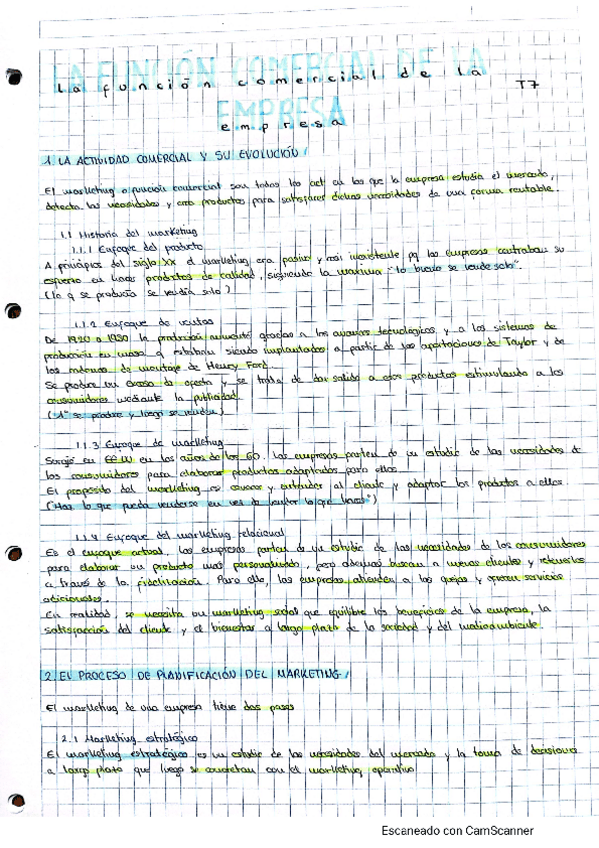 LA FUNCIÓN COMERCIAL DE LA EMPRESA
La función comercial de la T7
empresa
1. LA ACTIVIDAD COMERCIAL Y SU EVOLUCIÓN
El marketing o función comercial son todas las act en las que la empresa estudia el mercado,
detecta las necesidades y crea productos para satisfacer dichas necesidades de una forma rentable.
1.1 Historia del marketing
1.1.1 Enfoque del producto
A principios del siglo XX el marketing era pasivo y casi inexistente pq las empresas centraban su
esfuerzo en hacer productos de calidad, siguiendo la máxima "lo bueno se vende solo".
(lo q se producía se vendía solo)
1.1.2 Enfoque de ventas
De 1920 a 1950 la producción aumentó gracias a los avances tecnológicos y a los sistemas de
producción en masa q estaban siendo implantados a partir de las aportaciones de Taylor y de
las cadenas de montaje de Henry Ford.
Se produce un exceso de oferta y se trata de dar salida a esos productos estimulando a los
consumidores mediante la publicidad.
(1º se produce y luego se vende)
1.1.3 Enfoque de marketing
Surgió en EEUU en los años de los 60. Las empresas parten de un estudio de las necesidades de
los consumidores para elaborar productos adaptados para ellos.
El propósito del marketing es conocer y entender al cliente y adaptar los productos a ellos.
(Haz lo que pueda venderse en vez de vender lo que haces")
1.1.4 Enfoque del marketing relacional
Es el enfoque actual, las empresas parten de un estudio de las necesidades de los consumidores
para elaborar un producto más personalizado, pero además buscan a nuevos clientes y retenerlos
a través de la fidelización. Para ello, las empresas atienden a las quejas y ofrecen servicios
adicionales.
En realidad, se necesita un marketing social que equilibre los beneficios de la empresa, la
satisfacción del cliente y el bienestar a largo plazo de la sociedad y del medioambiente.
2. EL PROCESO DE PLANIFICACIÓN DEL MARKETING
El marketing de una empresa tiene dos pasos
2.1 Marketing estratégico
El marketing estratégico es un estudio de las necesidades del mercado y la toma de decisiones
a largo plazo que luego se concretan con el marketing operativo
Escaneado con CamScanner